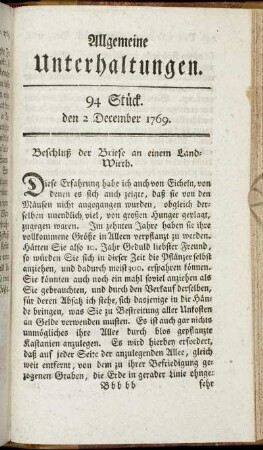 Allgemeine
Unterhaltungen.
94 Stück.
den 2 December 1769.
Beschluß der Briefe an einem Land-
Wirth.
Diese Erfahrung habe ich auch von Eicheln, von
denen es sich auch zeigte, daß sie von den
Mäusen nicht angegangen wurden, obgleich der-
selben unendlich viel, von großen Hunger geplagt,
zugegen waren. Im zehnten Jahre haben sie ihre
vollkommene Größe in Alleen verpflanzt zu werden.
Hätten Sie also 10. Jahr Geduld liebster Freund,
so würden Sie sich in dieser Zeit die Pflänzer selbst
anziehen, und dadurch meist 300. rl ersparen können.
Sie könnten auch noch ein mahl soviel anziehen als
Sie gebrauchten, und durch den Verkauf derselben,
für deren Absatz ich stehe, sich dasjenige in die Hän-
de bringen, was Sie zu Bestreitung aller Unkosten
an Gelde verwenden musten. Es ist auch gar nichts
unmögliches ihre Allee durch blos gepflanzte
Kastanien anzulegen. Es wird hierbey erfordert,
daß auf jeder Seite der anzulegenden Allee, gleich
weit entfernt, von dem zu ihrer Befriedigung ge-
zogenen Graben, die Erde in gerader Linie ohnge-
Bbb bb
sehr